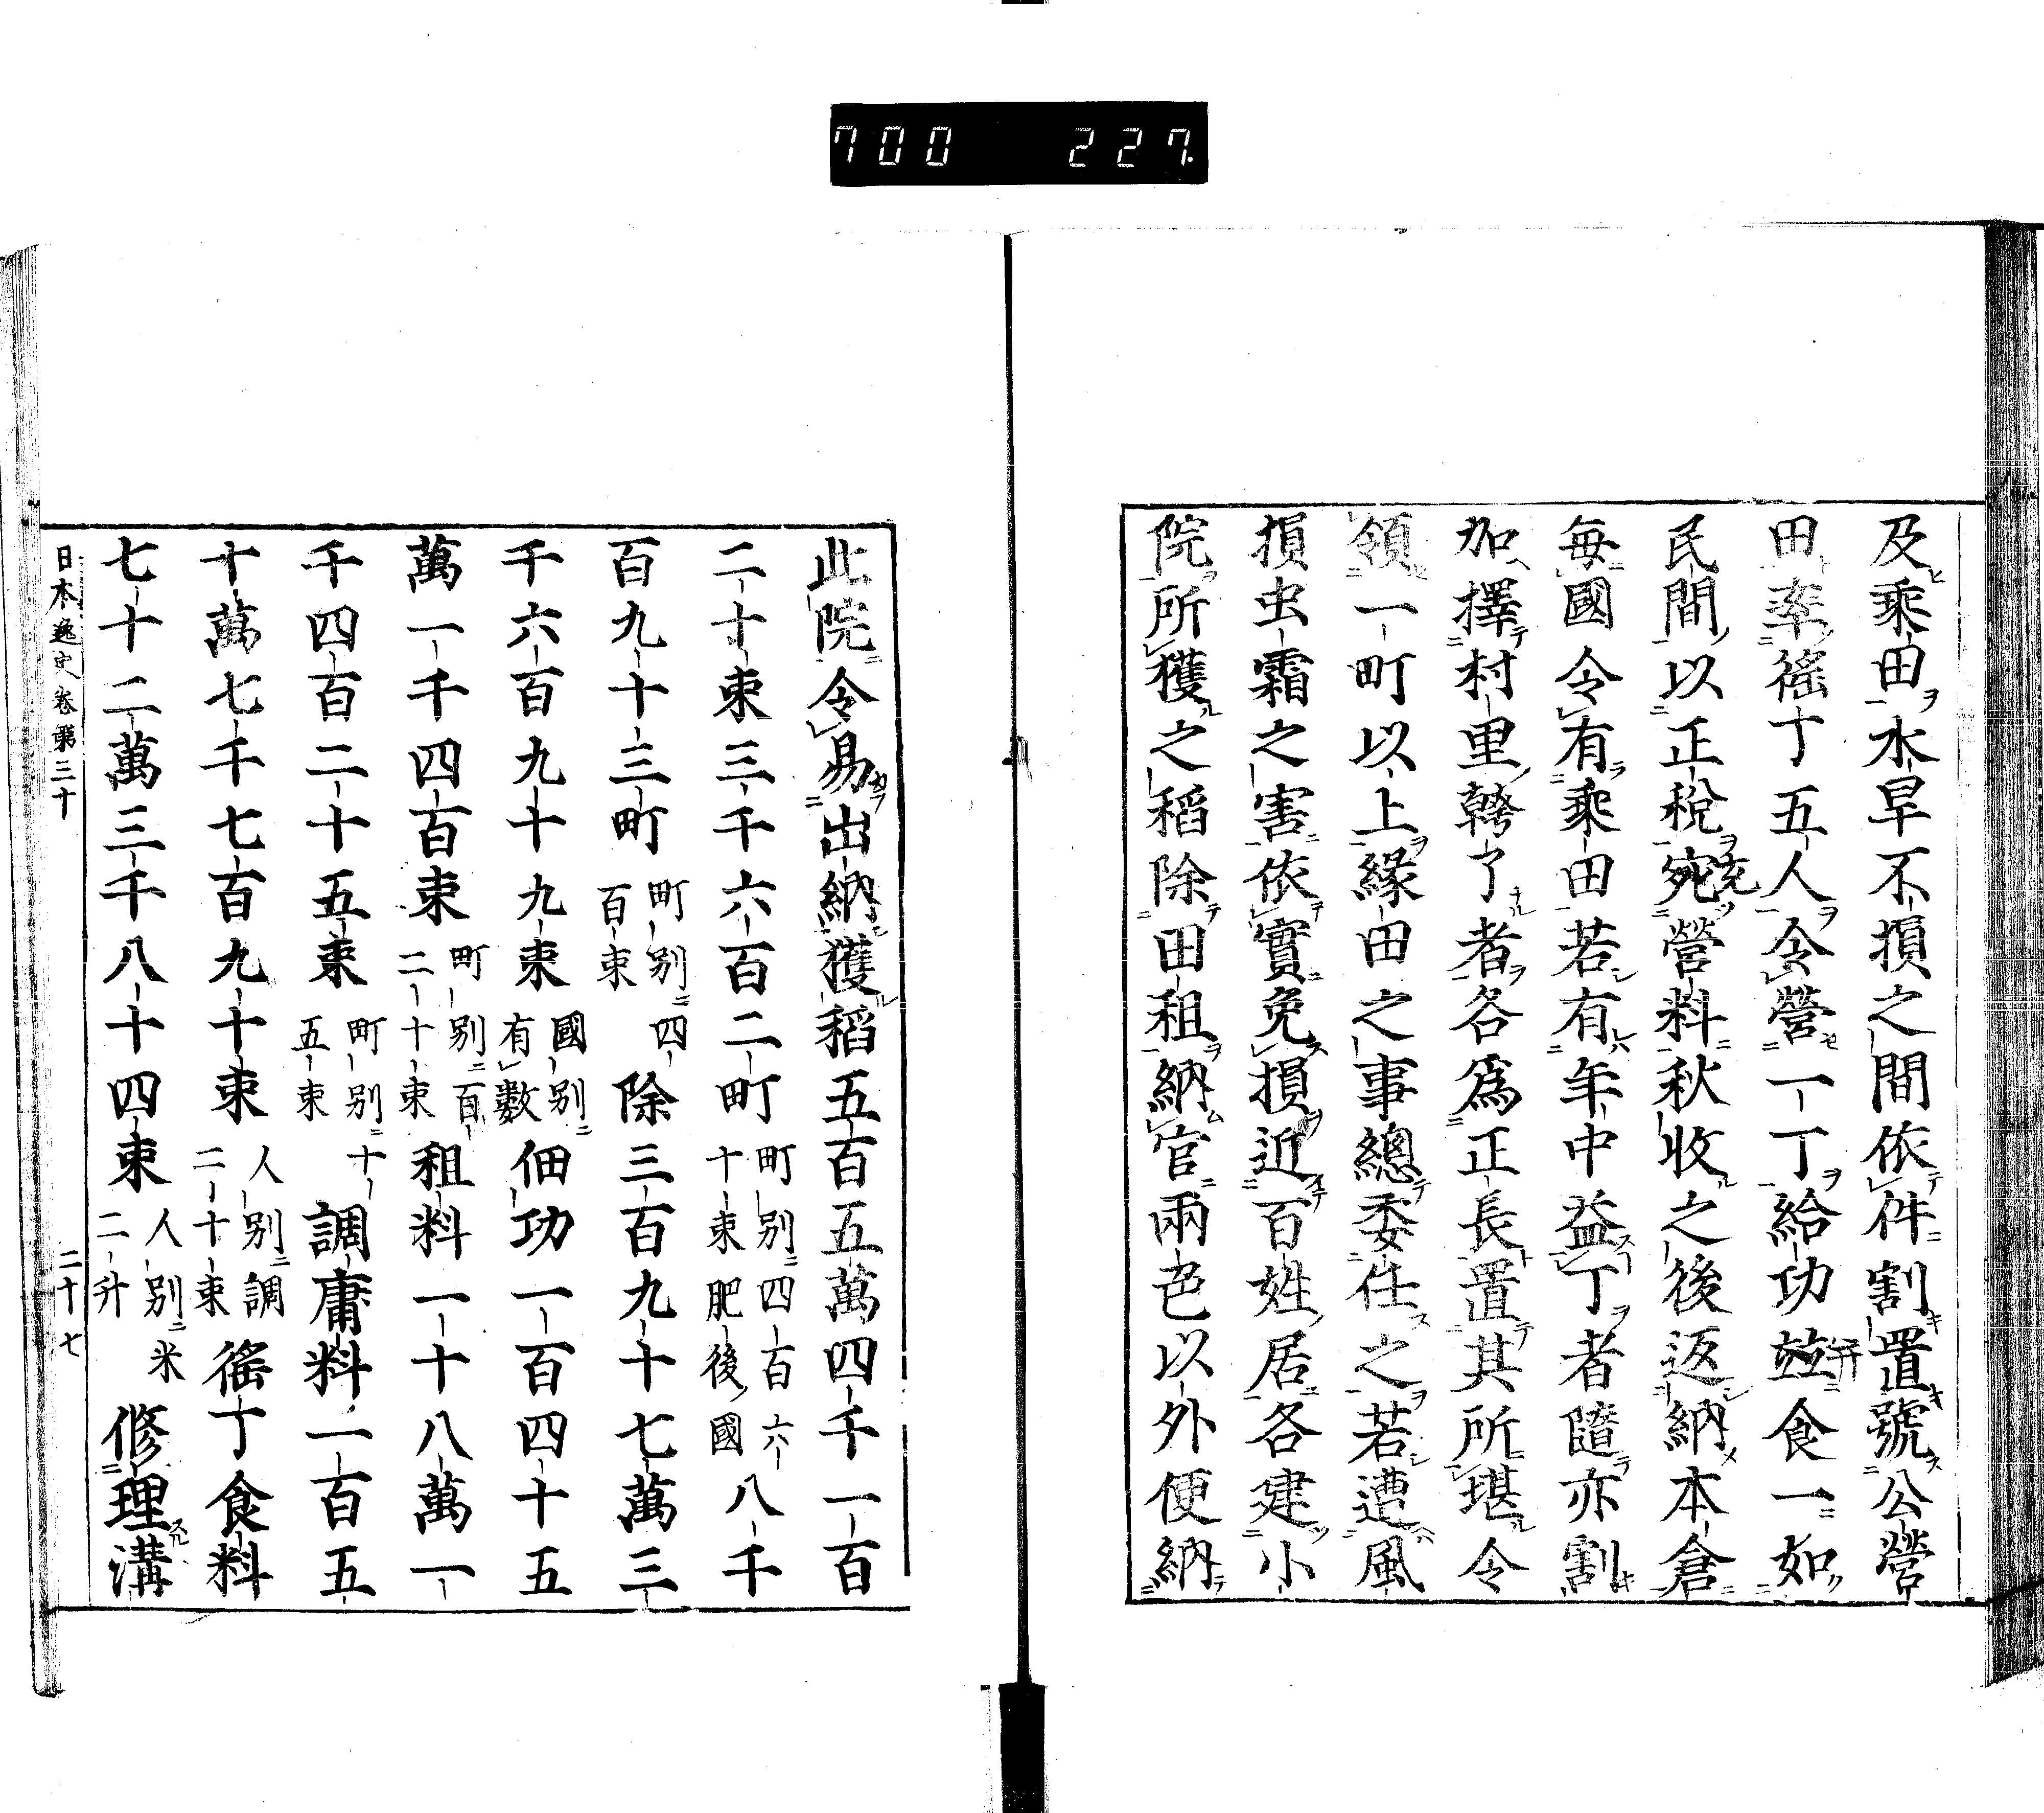 700 227
及乘田水旱不損之間依件割置號公營
田率徭丁五人令營一丁給功並食一如
民間以正税宛營料秋收之後返納本倉
每國令有乘田若有年中益丁者隨亦割
加擇村里幹了者各爲正長置其所堪令
領一町以上緣田之事總委任之若遭風
損虫霜之害依實免損近百姓居各建小
院所獲之稻除田租納官兩色以外便納
此院令易出納獲稻五百五萬四千一百
二十束三千六百二町町別四百六十束肥後國八千
百九十三町町別四百束除三百九十七萬三
千六百九十九束國別有數佃功一百四十五
萬一千四百束町別百二十束租料一十八萬一
千四百二十五束町別十五束調庸料一百五
十萬七千七百九十束人別調二十束徭丁食料
七十二萬三千八十四束人別米二升修理溝
日本逸史卷第三十 二十七